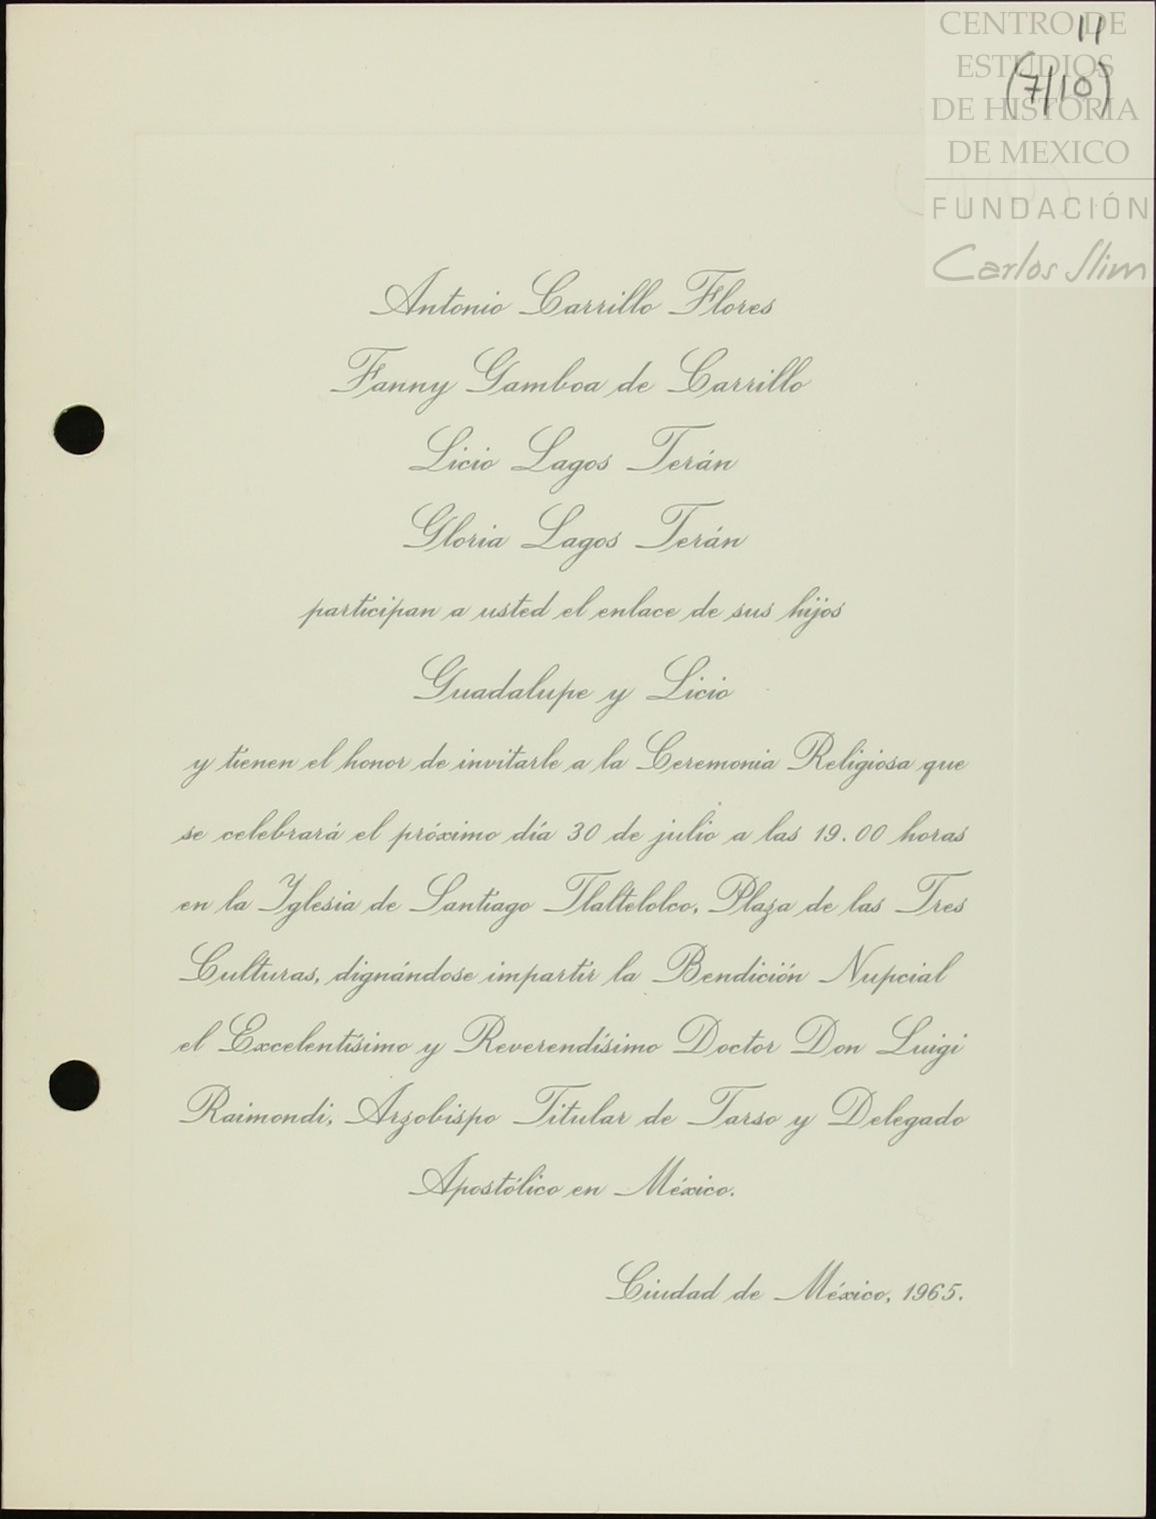 CENTRO DE
ESTUDIOS
DE HISTORIA
DE MEXICO
FUNDACIÓN
Carlos Slim
11
(7/10)
Antonio Carrillo Flores
Fanny Gamboa de Carrillo
Licio Lagos Terán
Gloria Lagos Terán
participan a usted el enlace de sus hijos
Guadalupe y Licio
y tienen el honor de invitarle a la Ceremonia Religiosa que
se celebrará el próximo día 30 de julio a las 19.00 horas
en la Iglesia de Santiago Tlaltelolco, Plaza de las Tres
Culturas, dignándose impartir la Bendición Nupcial
el Excelentísimo y Reverendísimo Doctor Don Luigi
Raimondi, Arzobispo Titular de Tarso y Delegado
Apostólico en México.
Ciudad de México, 1965.